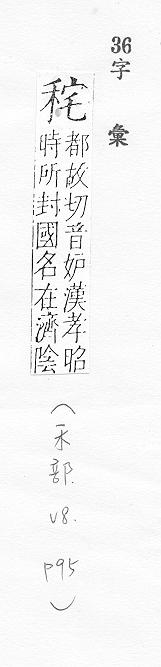 36字 彙
秺
都故切音妒漢孝昭
時所封國名在濟陰
(禾部. V8. p95)